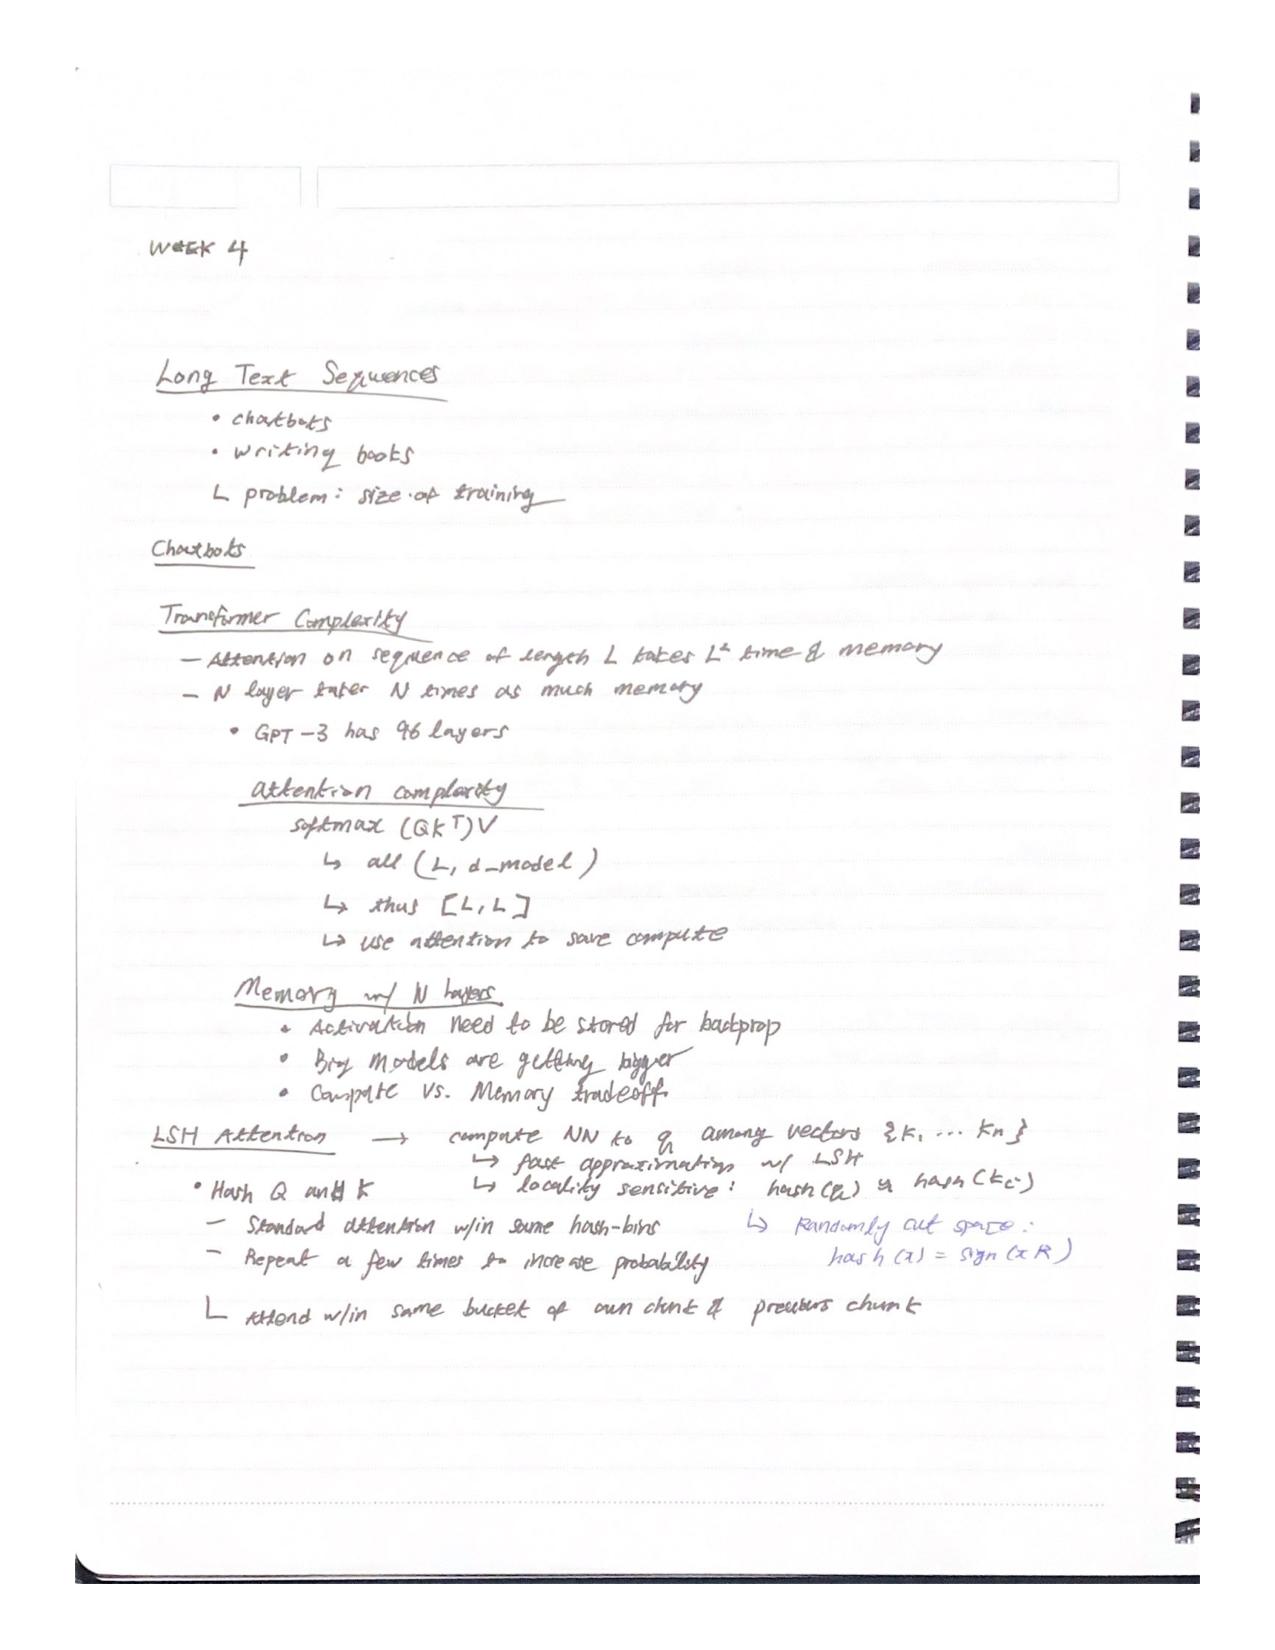 WEEK 4
Long Text Sequences
• chatbots
• writing books
↳ problem: size of training
Chatbots
Transformer Complexity
— Attention on sequence of length L takes L² time & memory
— N layer takes N times as much memory
• GPT-3 has 96 layers
attention complexity
softmax (QKᵀ)V
↳ all (L, d_model)
↳ thus [L, L]
↳ use attention to save compute
Memory w/ N layers
• Activation need to be stored for backprop
• Big models are getting bigger
• Compute vs. Memory tradeoff
LSH Attention → compute NN to q among vectors {k₁ ... kn}
↳ fast approximation w/ LSH
• Hash Q and K ↳ locality sensitive: hash(q) ≈ hash(ki)
— Standard attention w/in same hash-bins ↳ Randomly cut space:
— Repeat a few times to increase probability hash(x) = sign(xR)
↳ Attend w/in same bucket of own chunk & previous chunk